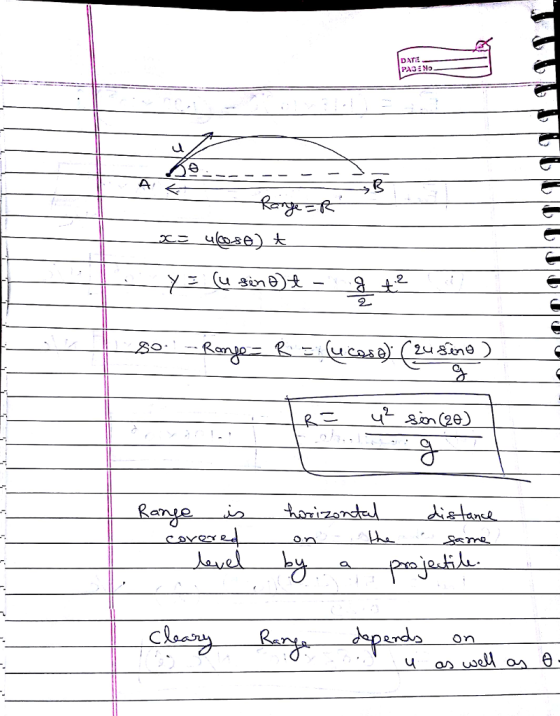 DATE
PAGE NO
u
θ
A
B
Range = R
x = u(cosθ) t
y = (u sinθ)t - g/2 t²
so Range = R = (u cosθ) (2u sinθ / g)
R = u² sin(2θ) / g
Range is horizontal distance
covered on the same
level by a projectile.
Cleary Range depends on
u as well as θ.